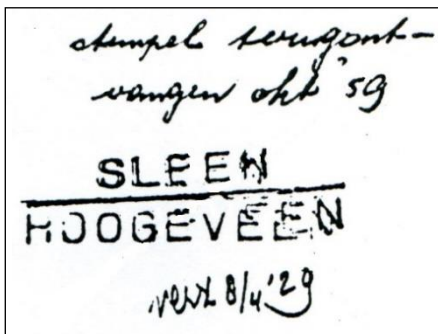 stempel terugont-
vangen okt '59
SLEEN
HOOGEVEEN
verz 8/4 '29